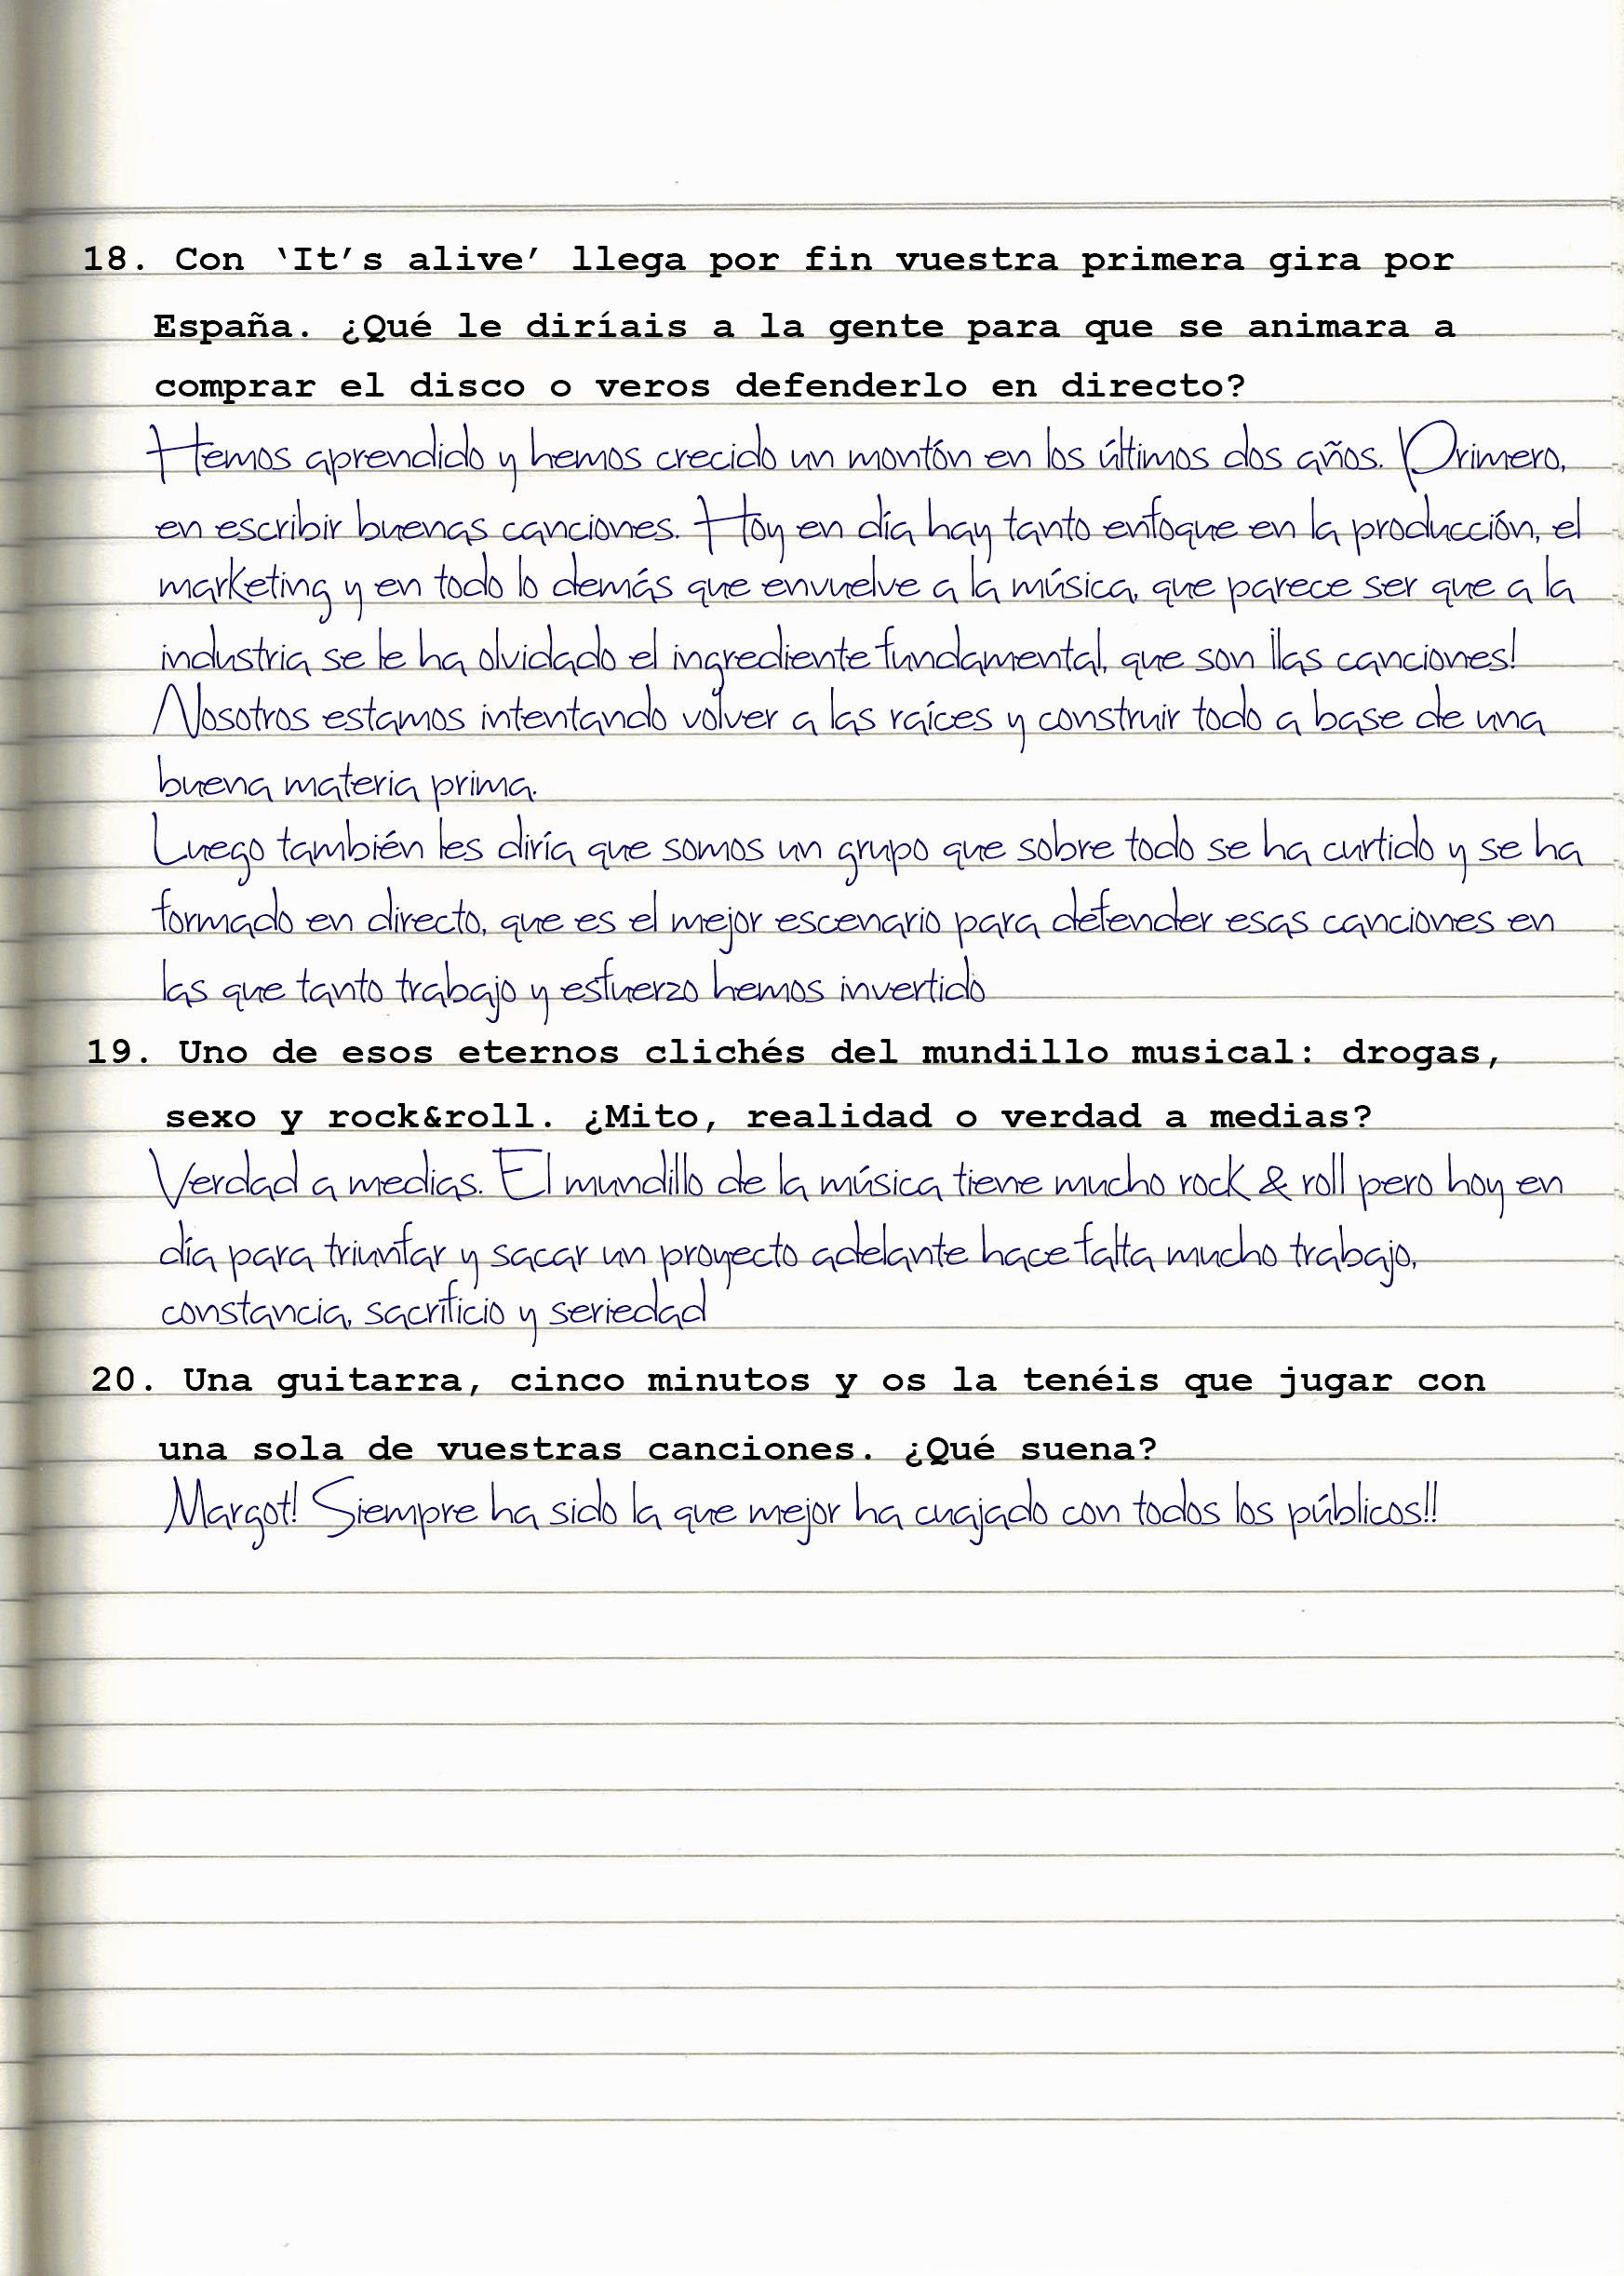 18. Con ‘It’s alive’ llega por fin vuestra primera gira por
España. ¿Qué le diríais a la gente para que se animara a
comprar el disco o veros defenderlo en directo?
Hemos aprendido y hemos crecido un montón en los últimos dos años. Primero,
en escribir buenas canciones. Hoy en día hay tanto enfoque en la producción, el
marketing y en todo lo demás que envuelve a la música, que parece ser que a la
industria se le ha olvidado el ingrediente fundamental, que son ¡las canciones!
Nosotros estamos intentando volver a las raíces y construir todo a base de una
buena materia prima.
Luego también les diría que somos un grupo que sobre todo se ha curtido y se ha
formado en directo, que es el mejor escenario para defender esas canciones en
las que tanto trabajo y esfuerzo hemos invertido
19. Uno de esos eternos clichés del mundillo musical: drogas,
sexo y rock&roll. ¿Mito, realidad o verdad a medias?
Verdad a medias. El mundillo de la música tiene mucho rock & roll pero hoy en
día para triunfar y sacar un proyecto adelante hace falta mucho trabajo,
constancia, sacrificio y seriedad
20. Una guitarra, cinco minutos y os la tenéis que jugar con
una sola de vuestras canciones. ¿Qué suena?
Margot! Siempre ha sido la que mejor ha cuajado con todos los públicos!!